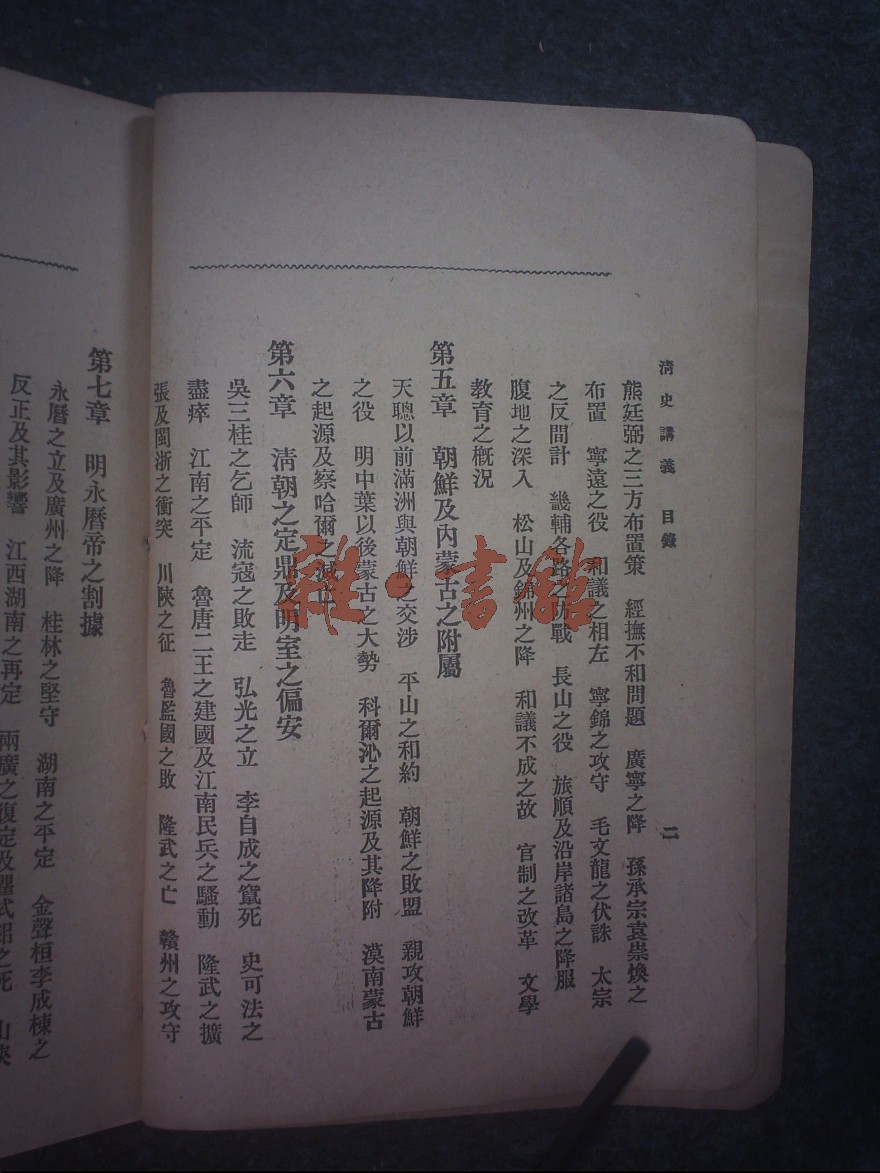 清史講義 目錄
二
熊廷弼之三方布置策 經撫不和問題 廣寧之降 孫承宗袁崇煥之
布置 寧遠之役 和議之相左 寧錦之攻守 毛文龍之伏誅 太宗
之反間計 畿輔各路之防戰 長山之役 旅順及沿岸諸島之降服
腹地之深入 松山及錦州之降 和議不成之故 官制之改革 文學
教育之概況
第五章 朝鮮及內蒙古之附屬
天聰以前滿洲與朝鮮之交涉 平山之和約 朝鮮之敗盟 親攻朝鮮
之役 明中葉以後蒙古之大勢 科爾沁之起源及其降附 漠南蒙古
之起源及察哈爾之滅亡
第六章 清朝之定鼎及明室之偏安
吳三桂之乞師 流寇之敗走 弘光之立 李自成之竄死 史可法之
盡瘁 江南之平定 魯唐二王之建國及江南民兵之騷動 隆武之擴
張及閩浙之衝突 川陝之征 魯監國之敗 隆武之亡 贛州之攻守
第七章 明永曆帝之割據
永曆之立及廣州之降 桂林之堅守 湖南之平定 金聲桓李成棟之
反正及其影響 江西湖南之再定 兩廣之復定及瞿式耜之死
雜·書館